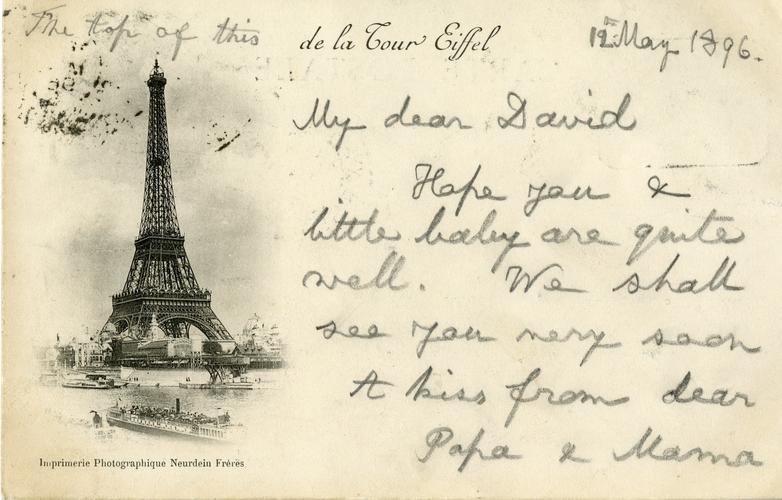 The top of this
de la Tour Eiffel
12th May 1896.
My dear David
Hope you &
little baby are quite
well. We shall
see you very soon
A kiss from dear
Papa & Mama
Imprimerie Photographique Neurdein Frères